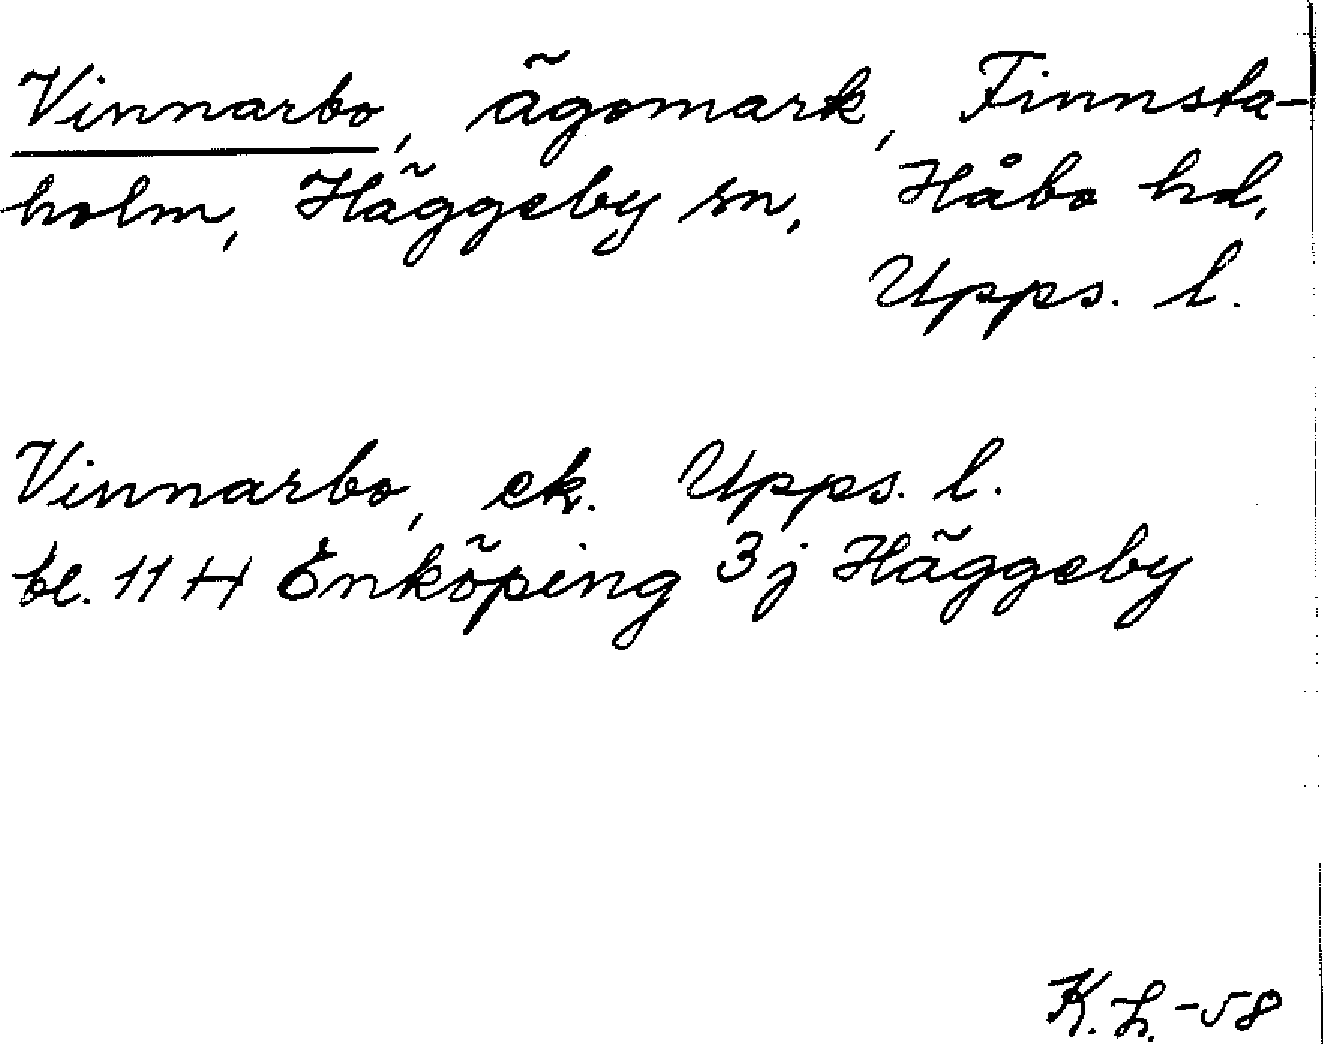 Vinnarbo, ägomark, Finnsta-
holm, Häggeby sn, Håbo hd,
Upps. l.
Vinnarbo, ek. Upps. l.
bl. 11 H Enköping 3j Häggeby
K. L. -58